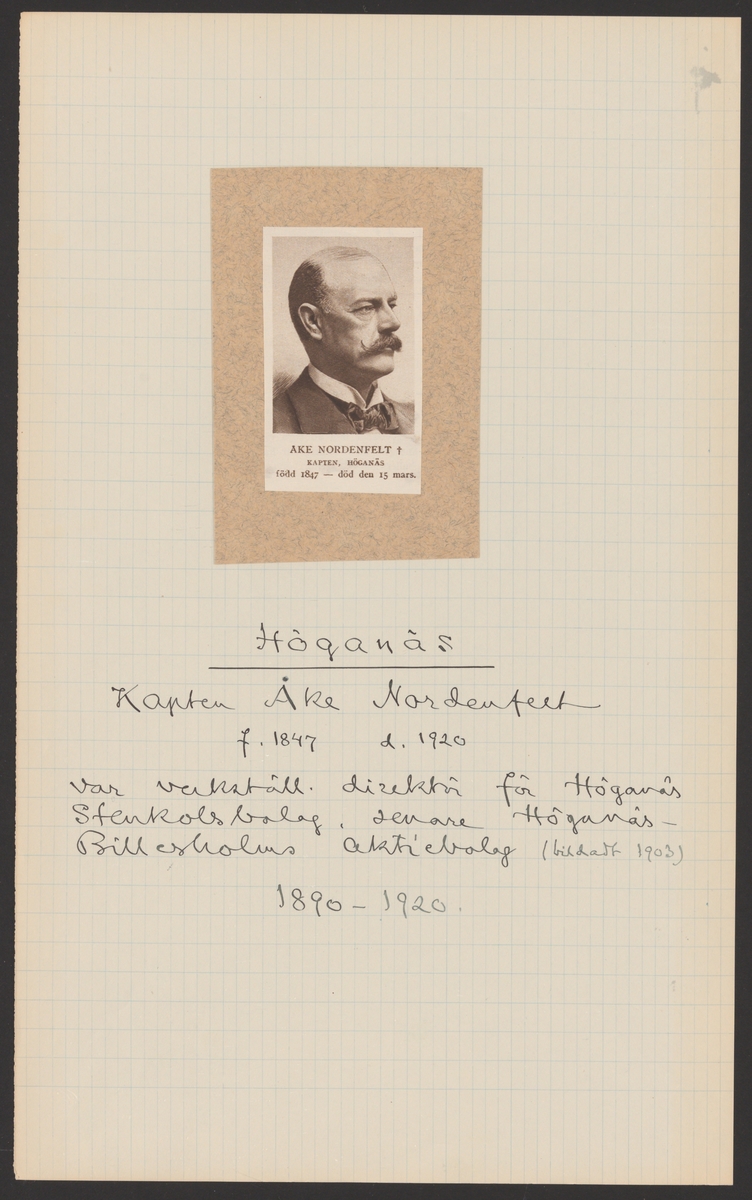 ÅKE NORDENFELT †
KAPTEN, HÖGANÄS
född 1847 — död den 15 mars.
Höganäs
Kapten Åke Nordenfelt
f. 1847 d. 1920
var verkställ. direktör för Höganäs
Stenkolsbolag, senare Höganäs-
Billesholms Aktiebolag (bildadt 1903)
1890 – 1920.